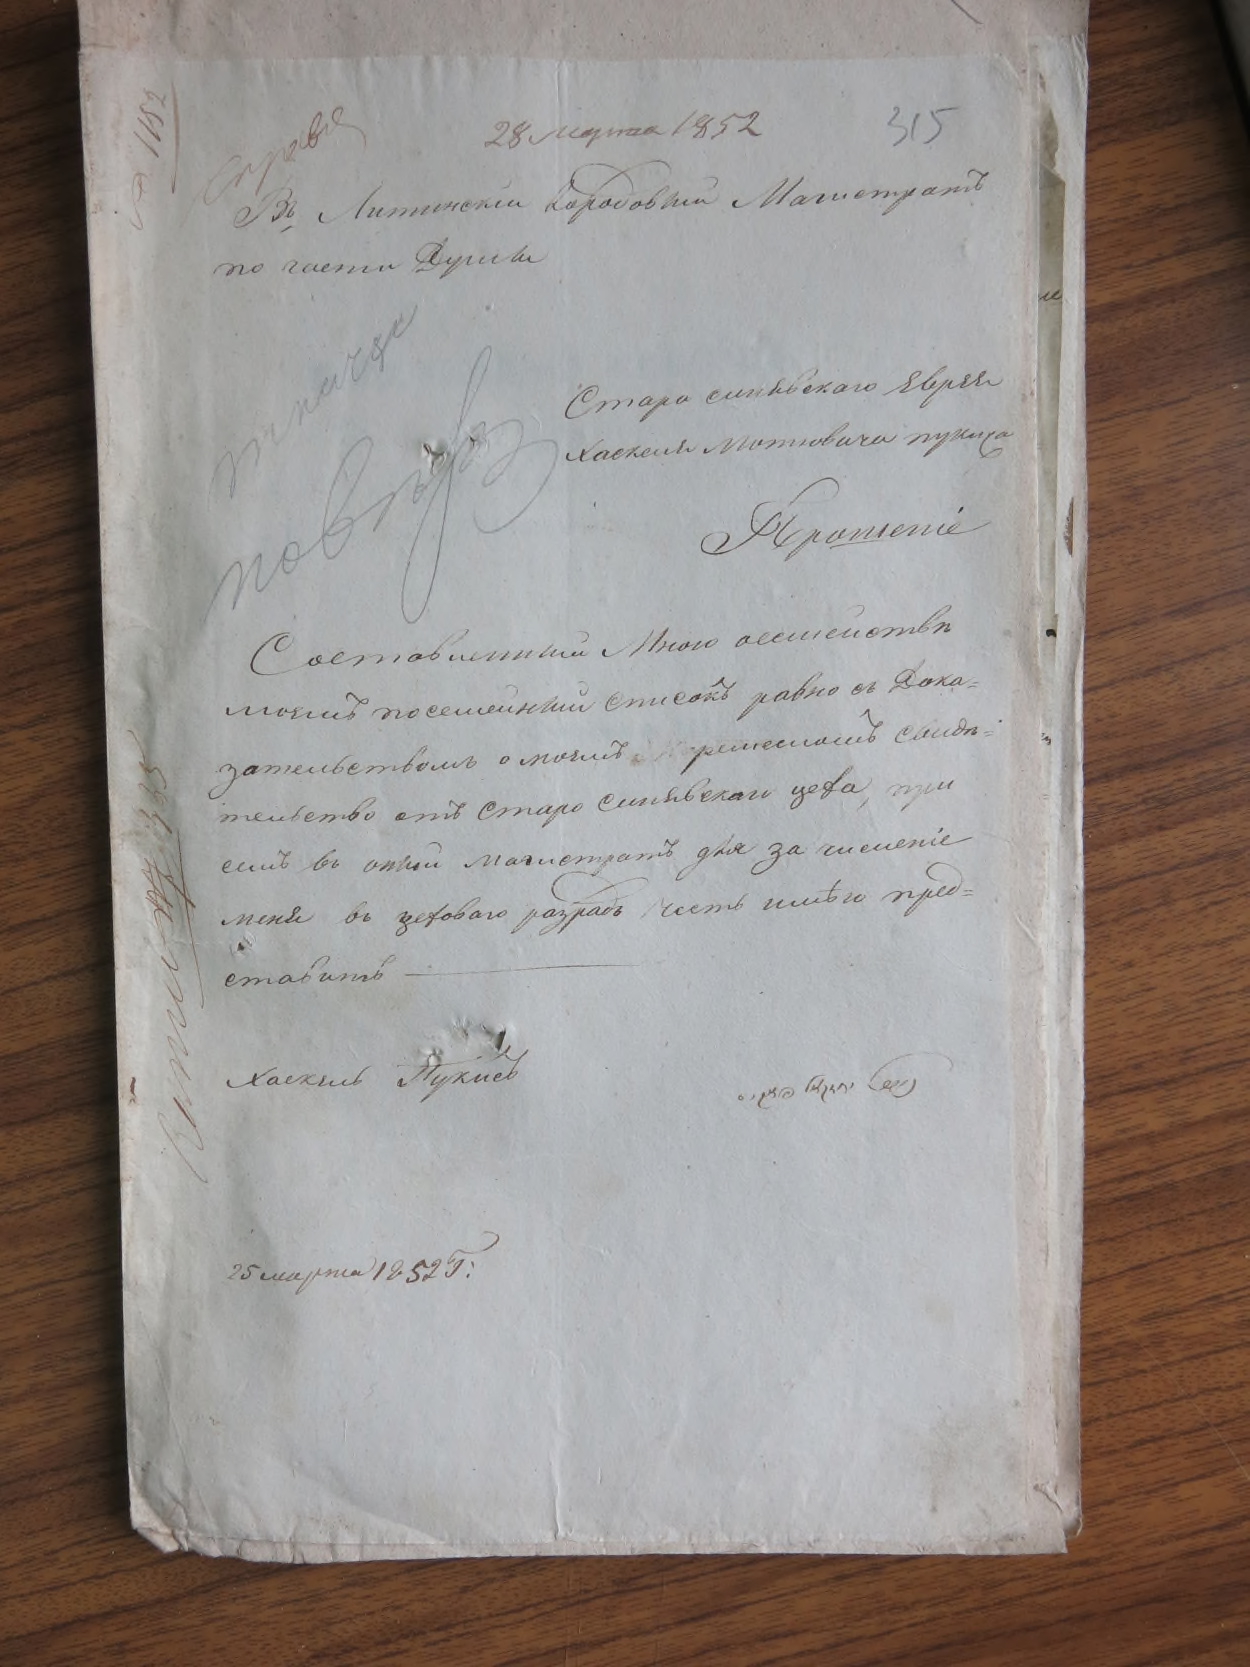 28 марта 1852
315
№ 1152
Въ Литинскій Городовый Магистратъ
по части Думы
Старо синявскаго Еврея
Хаскеля Мотьовича пукиса
Прошеніе
Составленный Мною осемействѣ
моемъ посемейный списокъ равно съ Дока=
зательствомъ о моемъ ремесломъ свидѣ=
тельство отъ Старо Синявскаго цеха, при
семъ въ оный магистратъ для за численіе
меня въ цеховаго разрядъ честь имѣю пред=
ставить
Хаскель Пукисъ
25 марта 1852 Г: